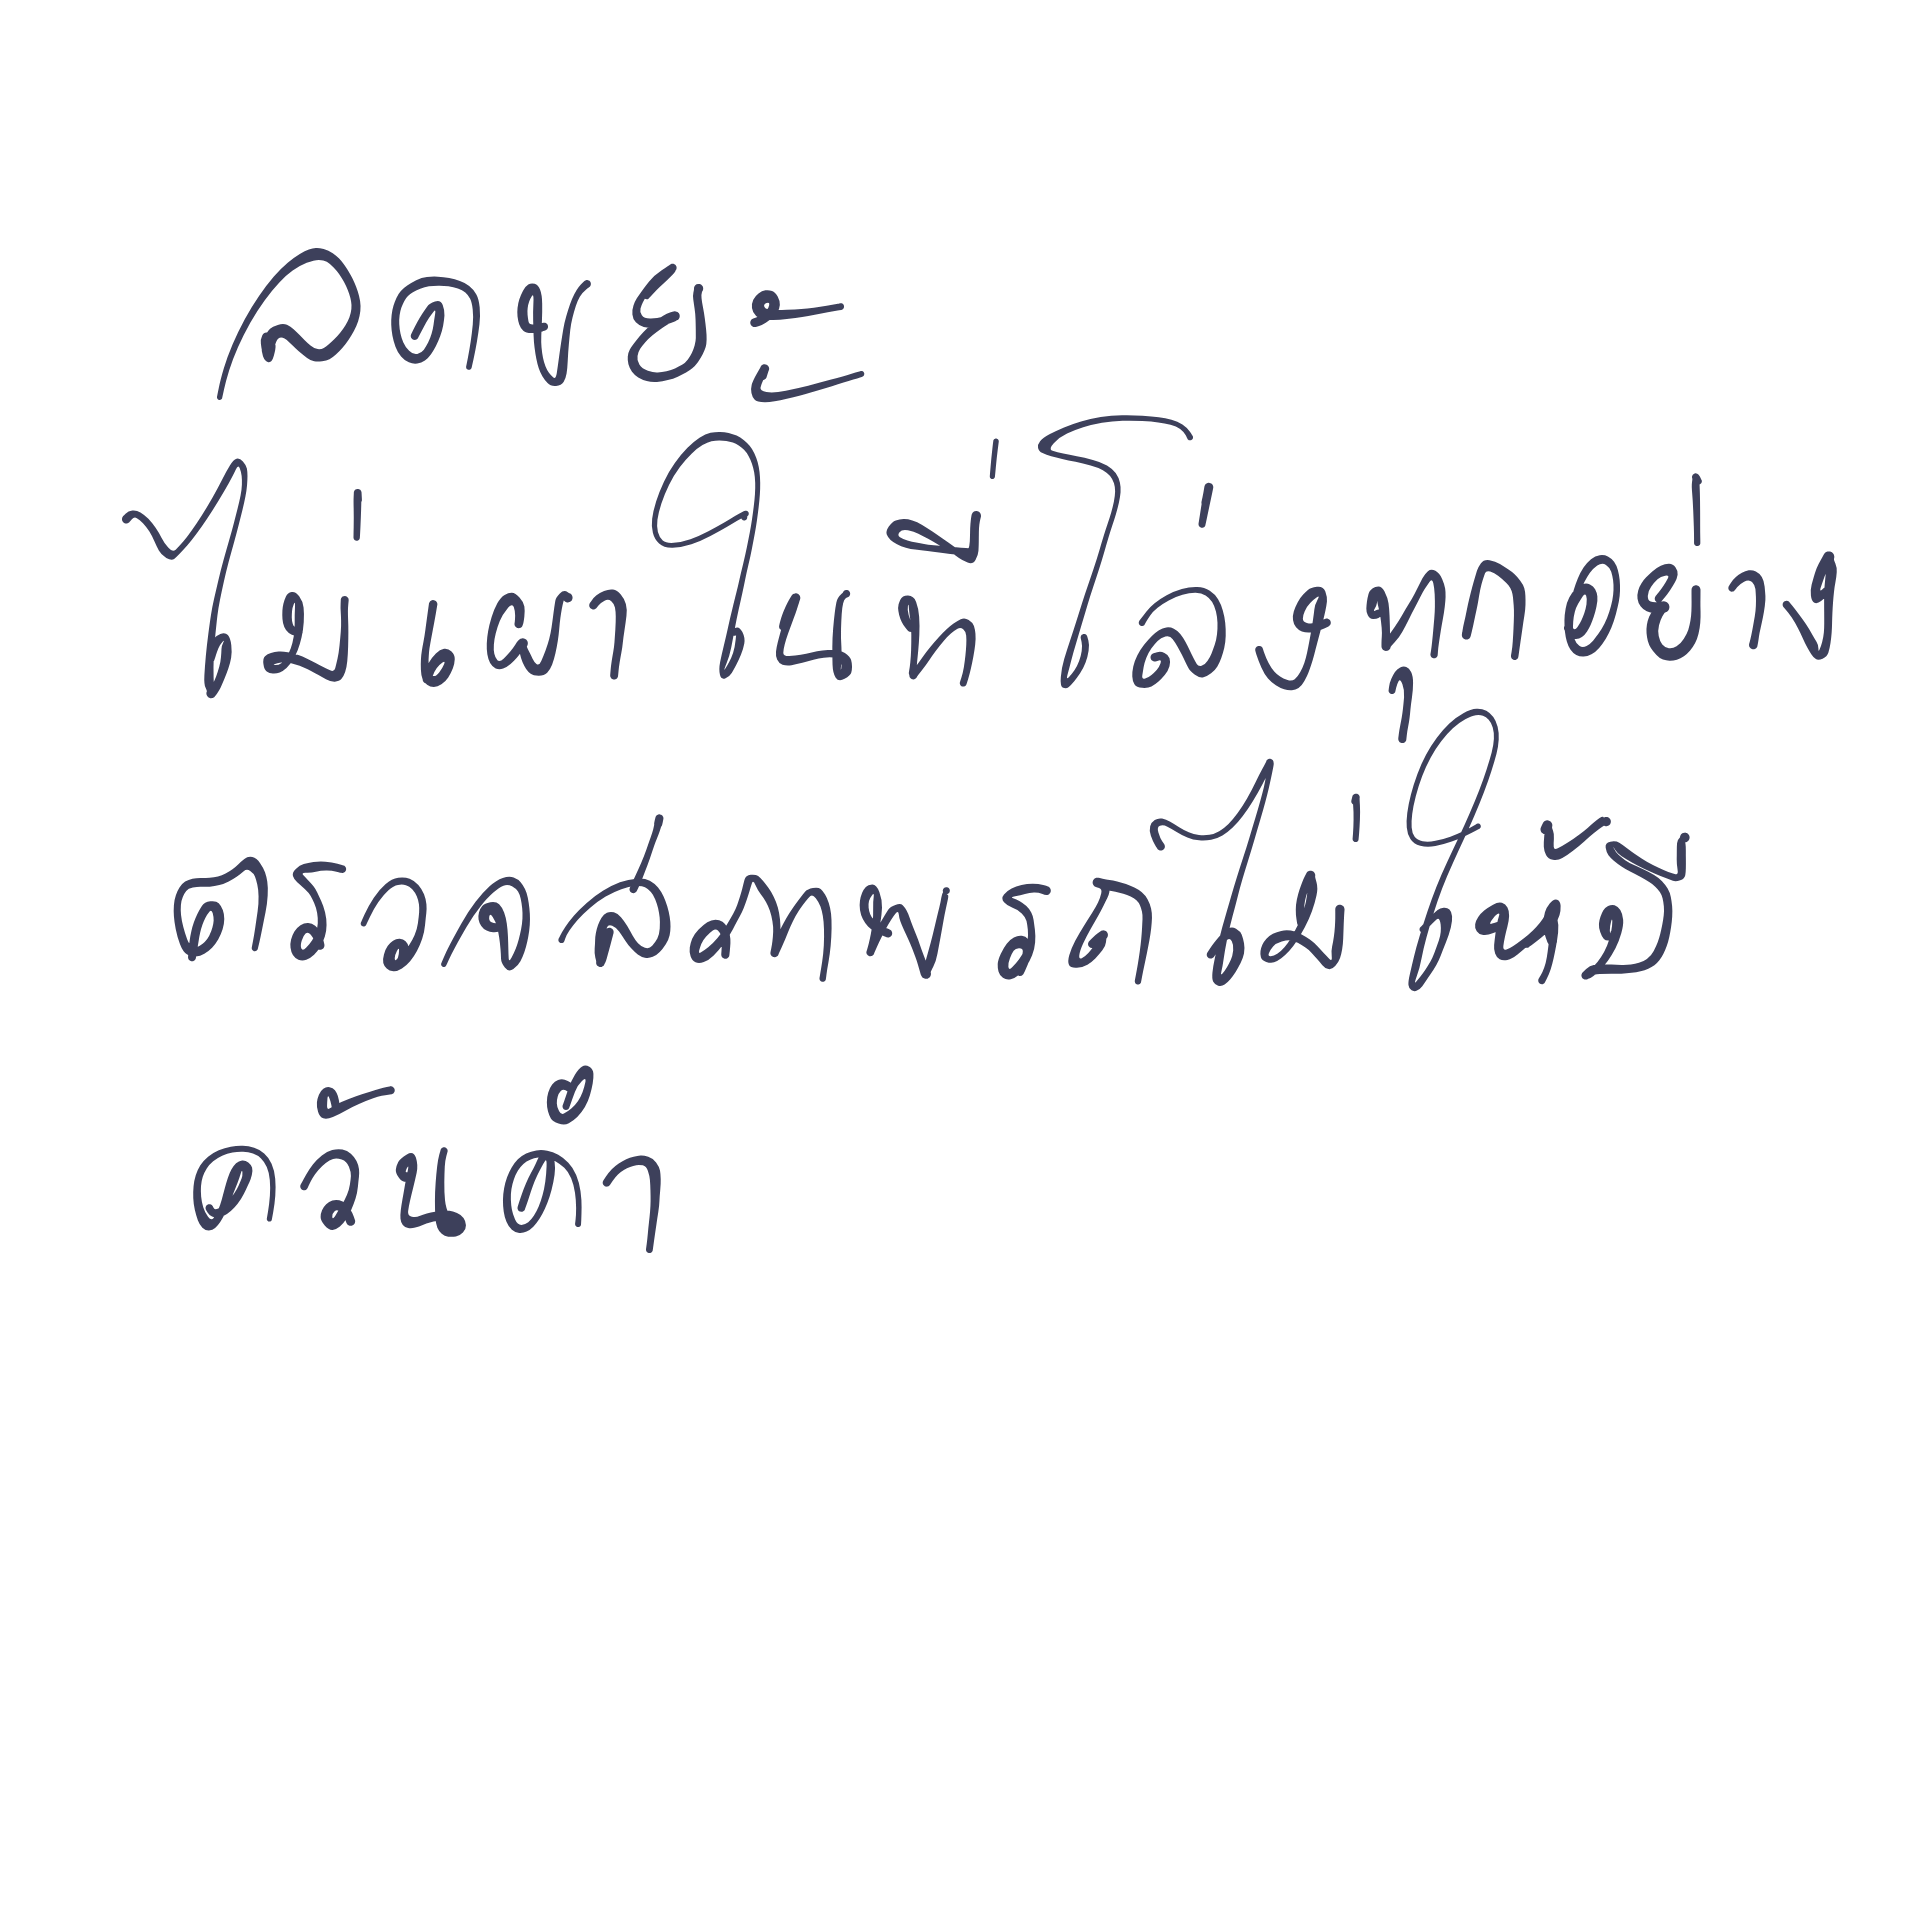 ลดขยะ
ไม่เผาในที่โล่งทุกอย่าง
ตรวจสภาพรถไม่ให้มี
ควันดำ